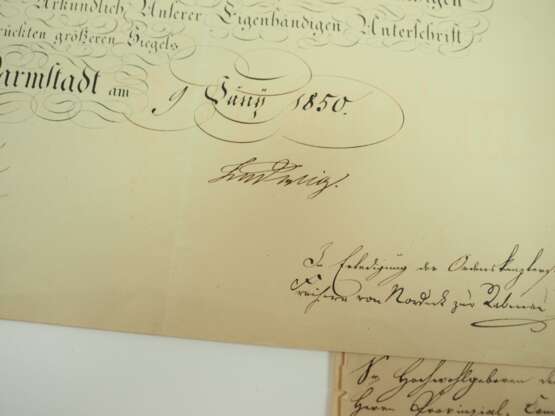 Urkundlich Unserer Eigenhändigen Unterschrift
rückten größeren Siegels
Darmstadt am 9 Juny 1850.
Ludwig.
In Erledigung der Ordenskanzlers
Freiherr von Nordeck zur Rabenau
Sr Hochwohlgeboren de
Herrn Provinzial Com